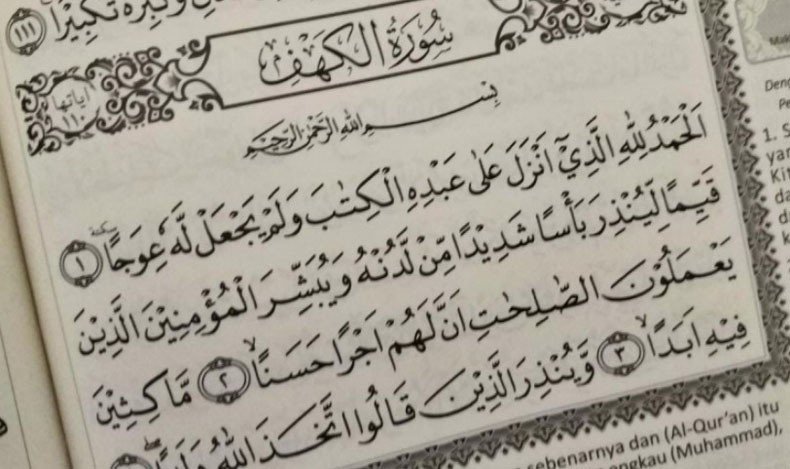 وَكَبِّرْهُ تَكْبِيْرًا ١١١
سُوْرَةُ الْكَهْفِ
اٰيَاتُهَا
١١٠
بِسْمِ اللّٰهِ الرَّحْمٰنِ الرَّحِيْمِ
اَلْحَمْدُ لِلّٰهِ الَّذِيْٓ اَنْزَلَ عَلٰى عَبْدِهِ الْكِتٰبَ وَلَمْ يَجْعَلْ لَّهٗ عِوَجًا ۜ ١
قَيِّمًا لِّيُنْذِرَ بَأْسًا شَدِيْدًا مِّنْ لَّدُنْهُ وَيُبَشِّرَ الْمُؤْمِنِيْنَ الَّذِيْنَ
يَعْمَلُوْنَ الصّٰلِحٰتِ اَنَّ لَهُمْ اَجْرًا حَسَنًاۙ ٢ مَّاكِثِيْنَ
فِيْهِ اَبَدًاۙ ٣ وَّيُنْذِرَ الَّذِيْنَ قَالُوا اتَّخَذَ اللّٰهُ وَلَدًا
Deng
Pe
1. S
yan
Kit
da
sebenarnya dan (Al-Qur'an) itu
engkau (Muhammad),